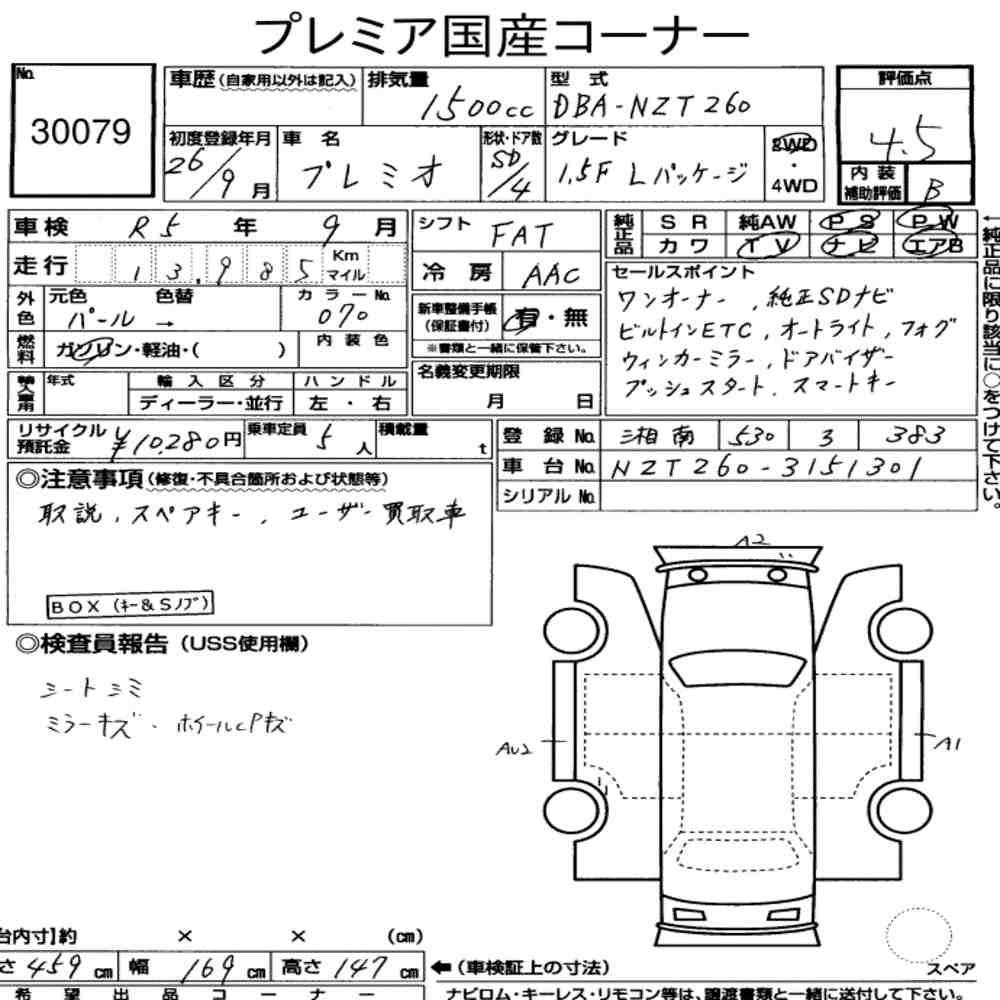 プレミア国産コーナー
No.
30079
車歴 (自家用以外は記入)
排気量
1500cc
型 式
DBA-NZT260
評価点
4.5
初度登録年月
26/9月
車 名
プレミオ
形状・ドア数
SD/4
グレード
1.5F Lパッケージ
2WD
・
4WD
内装補助評価
B
車検 R5 年 9 月
シフト FAT
純正品
SR 純AW PS PW
カワ TV ナビ エアB
走行 13,985 Km マイル
冷房 AAC
セールスポイント
ワンオーナー、純正SDナビ
ビルトインETC、オートライト、フォグ
ウィンカーミラー、ドアバイザー
プッシュスタート、スマートキー
←純正品に限り該当に○をつけて下さい。
外色
元色 色替
パール →
カラーNo.
070
新車整備手帳(保証書付)
有・無
※書類と一緒に保管下さい。
燃料
ガソリン・軽油・( )
内装色
名義変更期限
月 日
輸入車用
年式
輸入区分
ディーラー・並行
ハンドル
左・右
リサイクル預託金 ¥10,280円
乗車定員 5人
積載量 t
登録No. 湘南 530 ミ 383
車台No. NZT260-3151301
シリアルNo.
◎注意事項 (修復・不具合箇所および状態等)
取説、スペアキー、ユーザー買取車
BOX (キー&Sノブ)
◎検査員報告 (USS使用欄)
シートシミ
ミラーキズ・ホイールCPキズ
A2
AU2
A1
台内寸]約 × × (cm)
さ 459 cm 幅 169 cm 高さ 147 cm
←(車検証上の寸法)
スペア
希望出品コーナー
ナビロム・キーレス・リモコン等は、譲渡書類と一緒に送付して下さい。